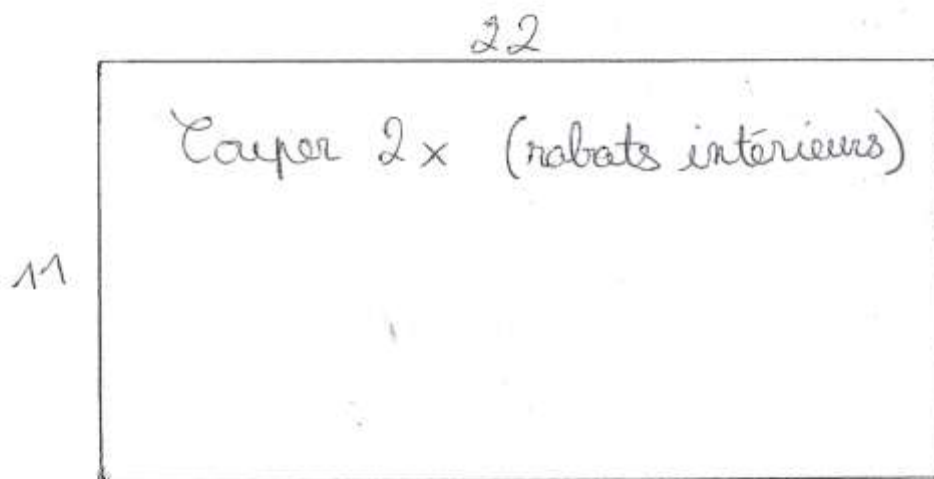 22
Couper 2x (rabats intérieurs)
11